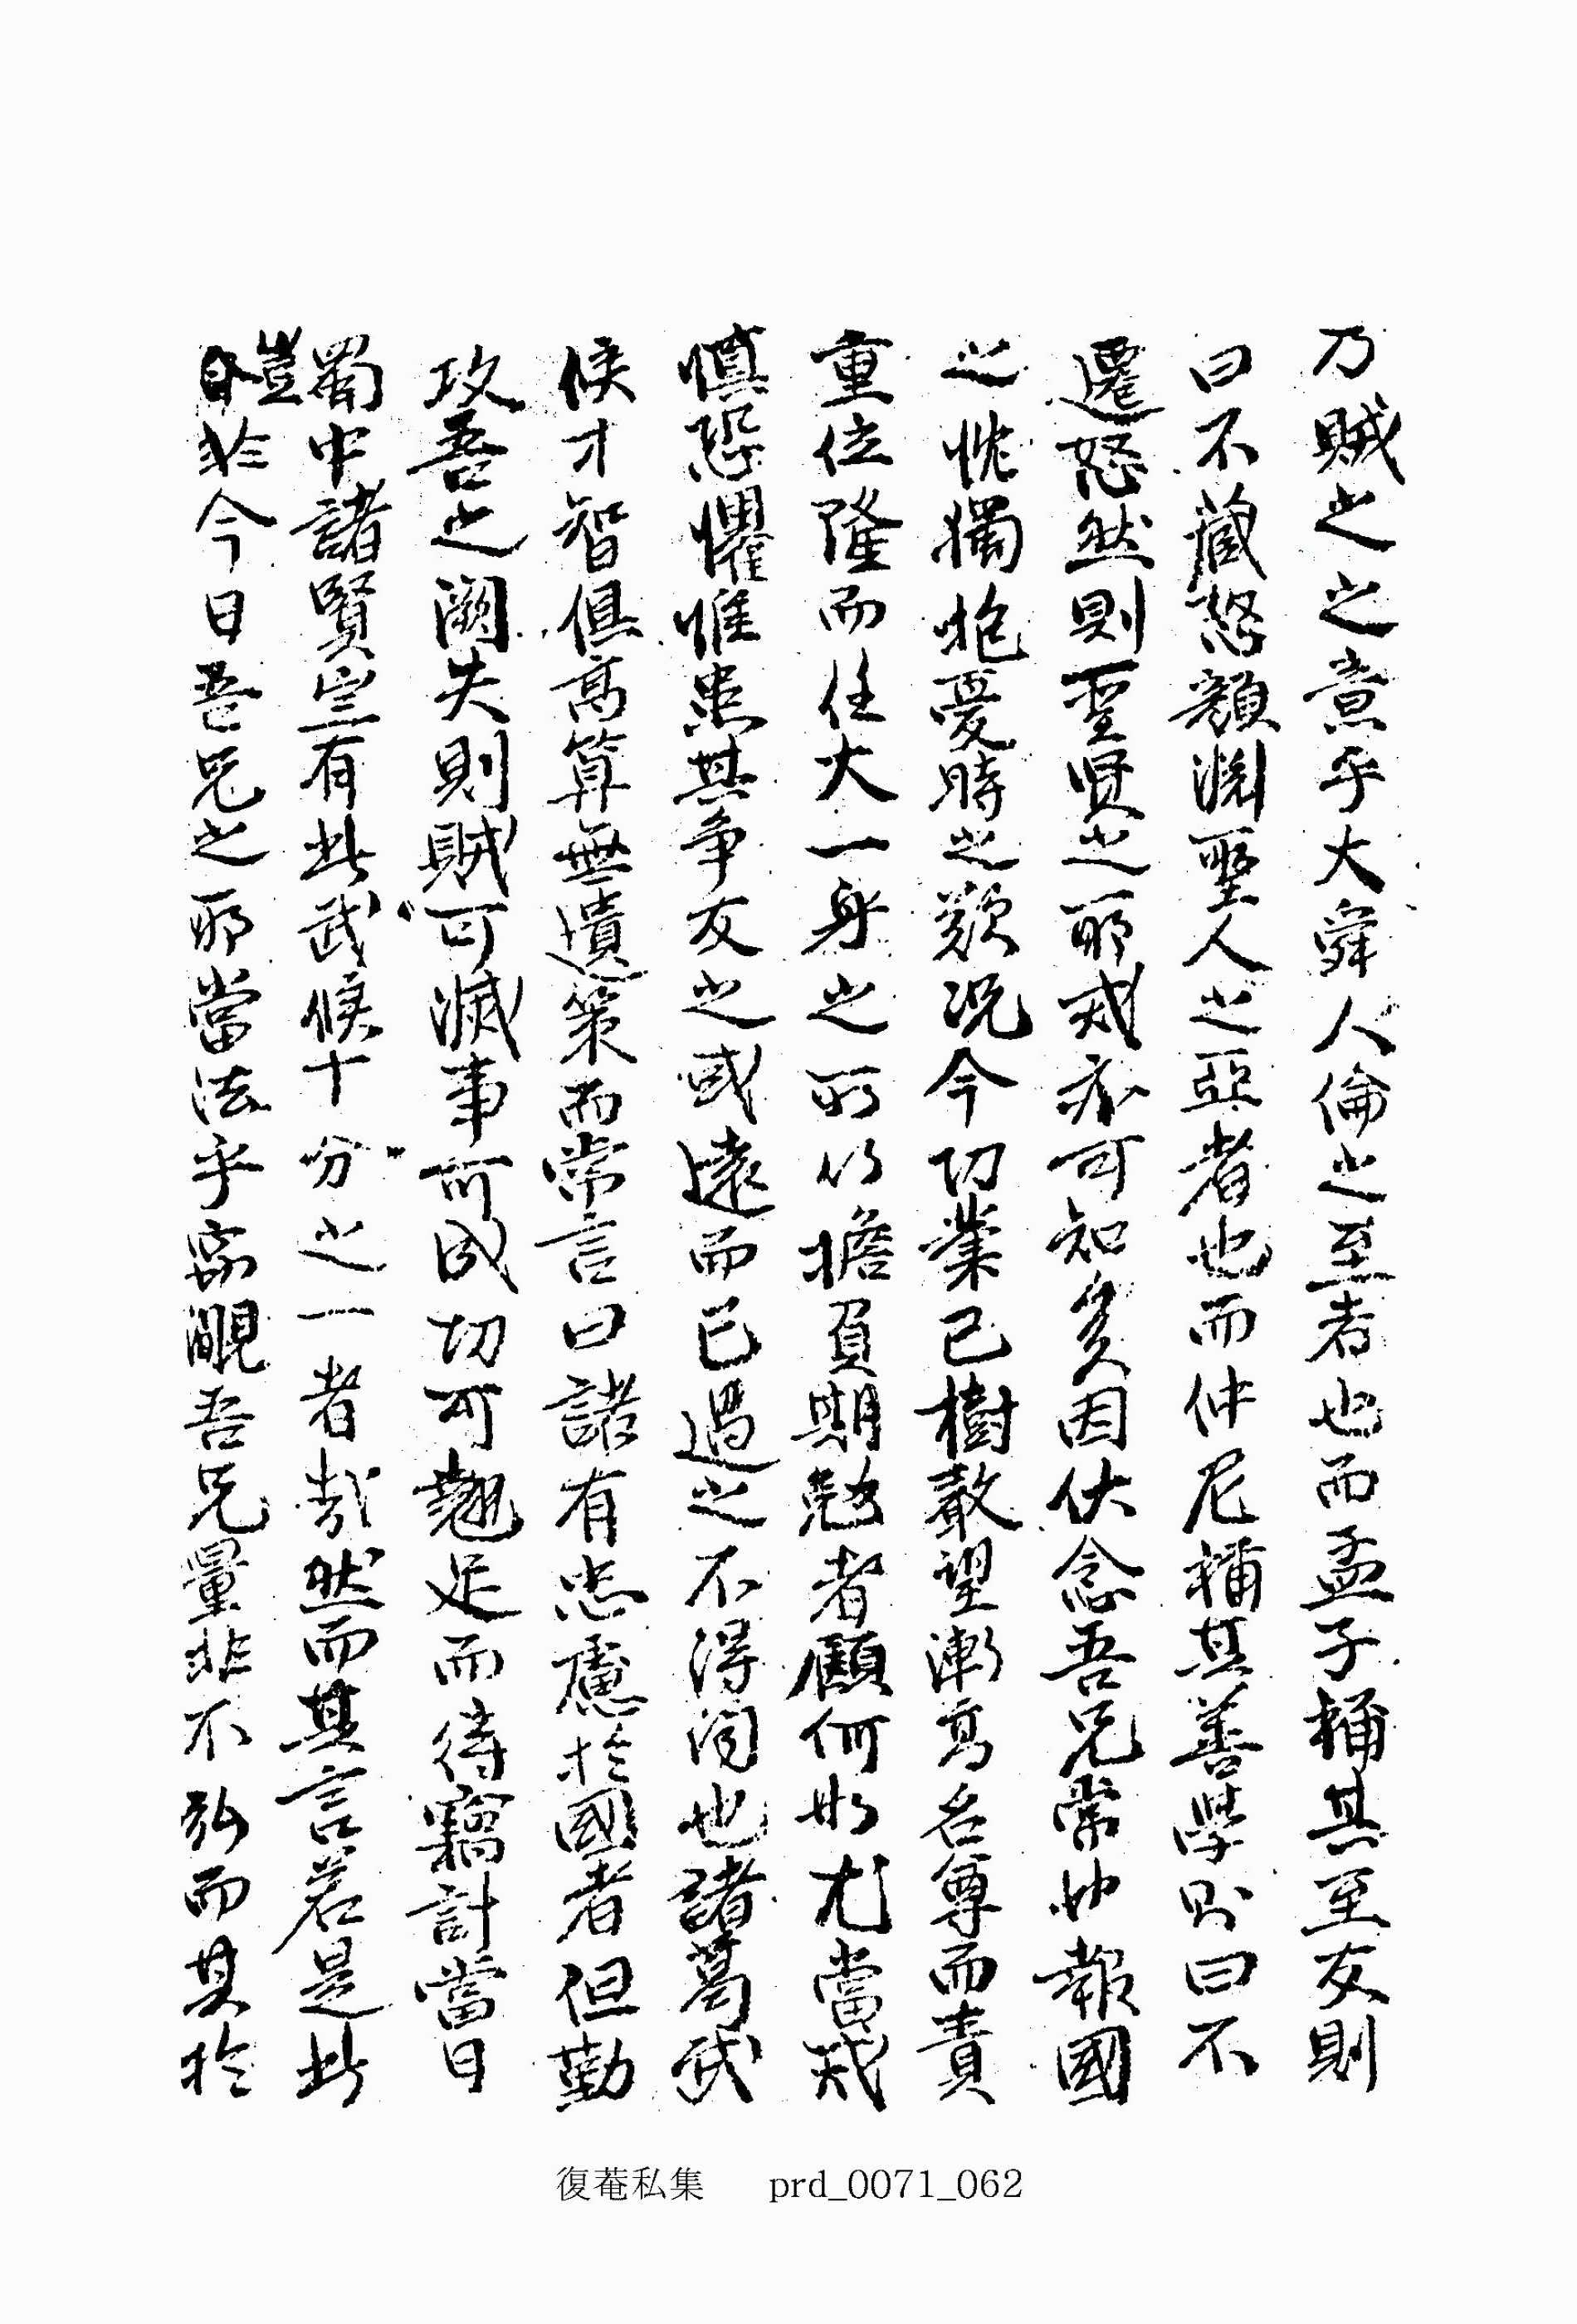 乃賊之之意乎大舜人倫之至者也而孟子稱其至友則
曰不藏怒顏淵聖人之亞者也而仲尼稱其善學則曰不
遷怒然則聖賢之所戒亦可知矣因伏念吾兄常以報國
之忱獨抱憂時之歎況今功業已樹敵望漸高名尊而責
重位隆而任大一身之所以擔負期勉者顧何如尤當戒
愼恐懼惟患其爭友之或遠而已過之不得聞也諸葛武
侯才智俱高算無遺策而常言曰諸有忠慮於國者但勤
攻吾之闕失則賊可滅事可成功可翹足而待竊計當日
蜀中諸賢豈有此武侯十分之一者哉然而其言若是此
豈非今日吾兄之所當法乎窃覸吾兄量非不弘而其於
復菴私集 prd_0071_062